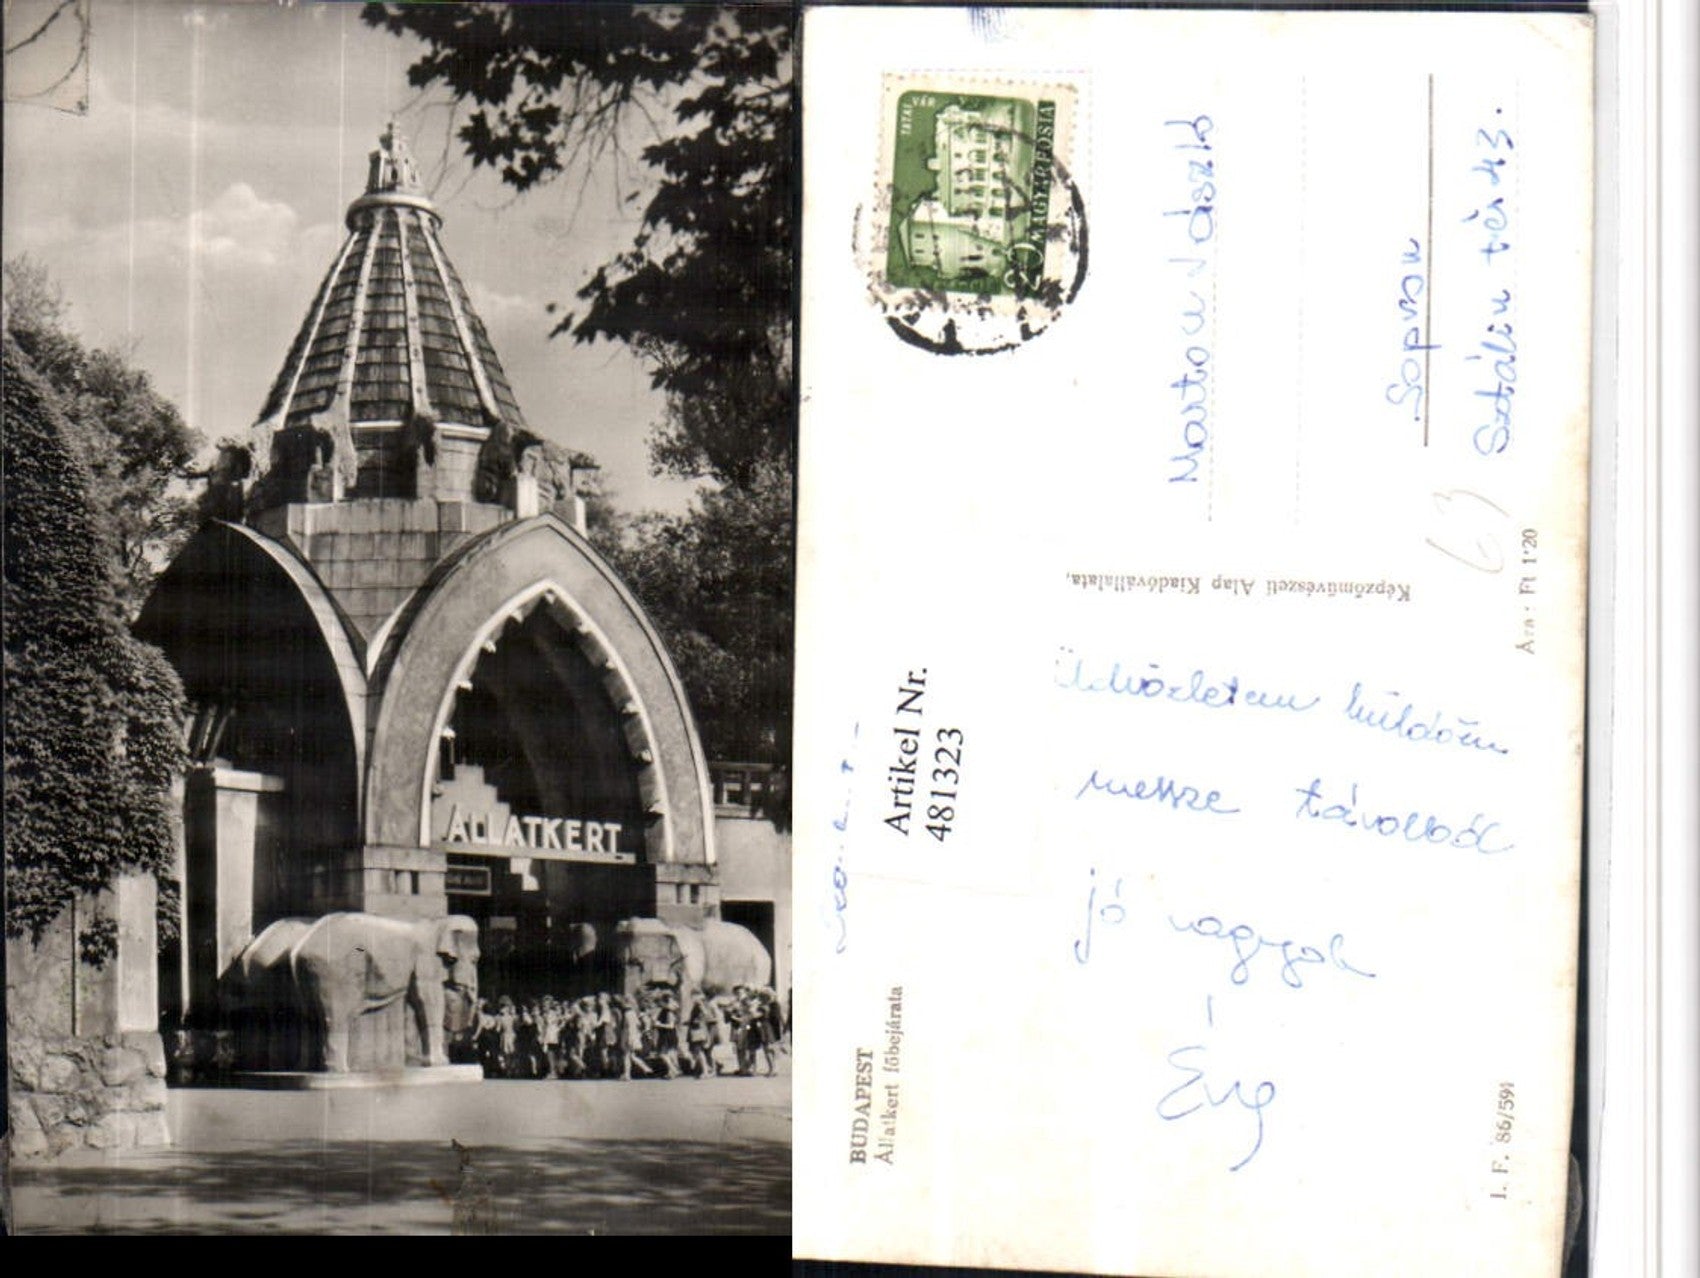 ÁLLATKERT
TATAI VÁR
MAGYAR POSTA
Marton László
Sopron
Sztálin tér 43.
63
Képzőművészeti Alap Kiadóvállalata,
Ára: Ft 1'20
Artikel Nr.
481323
Üdvözletem küldöm
messze távolból
jó vagyok
Évg
BUDAPEST
Állatkert főbejárata
I. F. 86/591